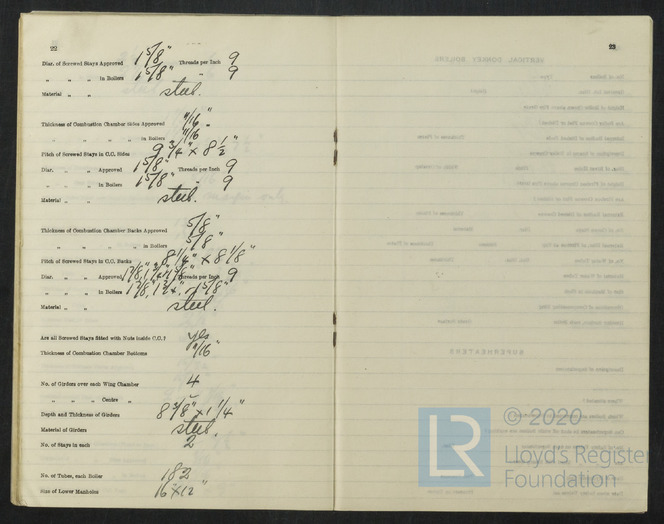 22
Diar. of Screwed Stays Approved 1 5/8" Threads per Inch 9
" " " in Boilers 1 5/8" " 9
Material " " steel.
Thickness of Combustion Chamber Sides Approved 11/16"
" " " " in Boilers 11/16"
Pitch of Screwed Stays in C.C. Sides 9 3/4" × 8 1/2"
Diar. " " Approved 1 5/8" Threads per Inch 9
" " " in Boilers 1 5/8" " 9
Material " " steel.
Thickness of Combustion Chamber Backs Approved 5/8"
" " " " in Boilers 5/8"
Pitch of Screwed Stays in C.C. Backs 8 1/4" × 8 1/8"
Diar. " " Approved Threads per Inch 9
" " " in Boilers 1 5/8" 9
Material " " steel.
Are all Screwed Stays fitted with Nuts inside C.C.? yes
Thickness of Combustion Chamber Bottoms 11/16"
No. of Girders over each Wing Chamber 4
" " " Centre " -
Depth and Thickness of Girders 8 3/8" × 1 1/4"
Material of Girders steel.
No. of Stays in each 2
No. of Tubes, each Boiler 182
Size of Lower Manholes 16" × 12"
23
LR
© 2020
Lloyd's Register
Foundation